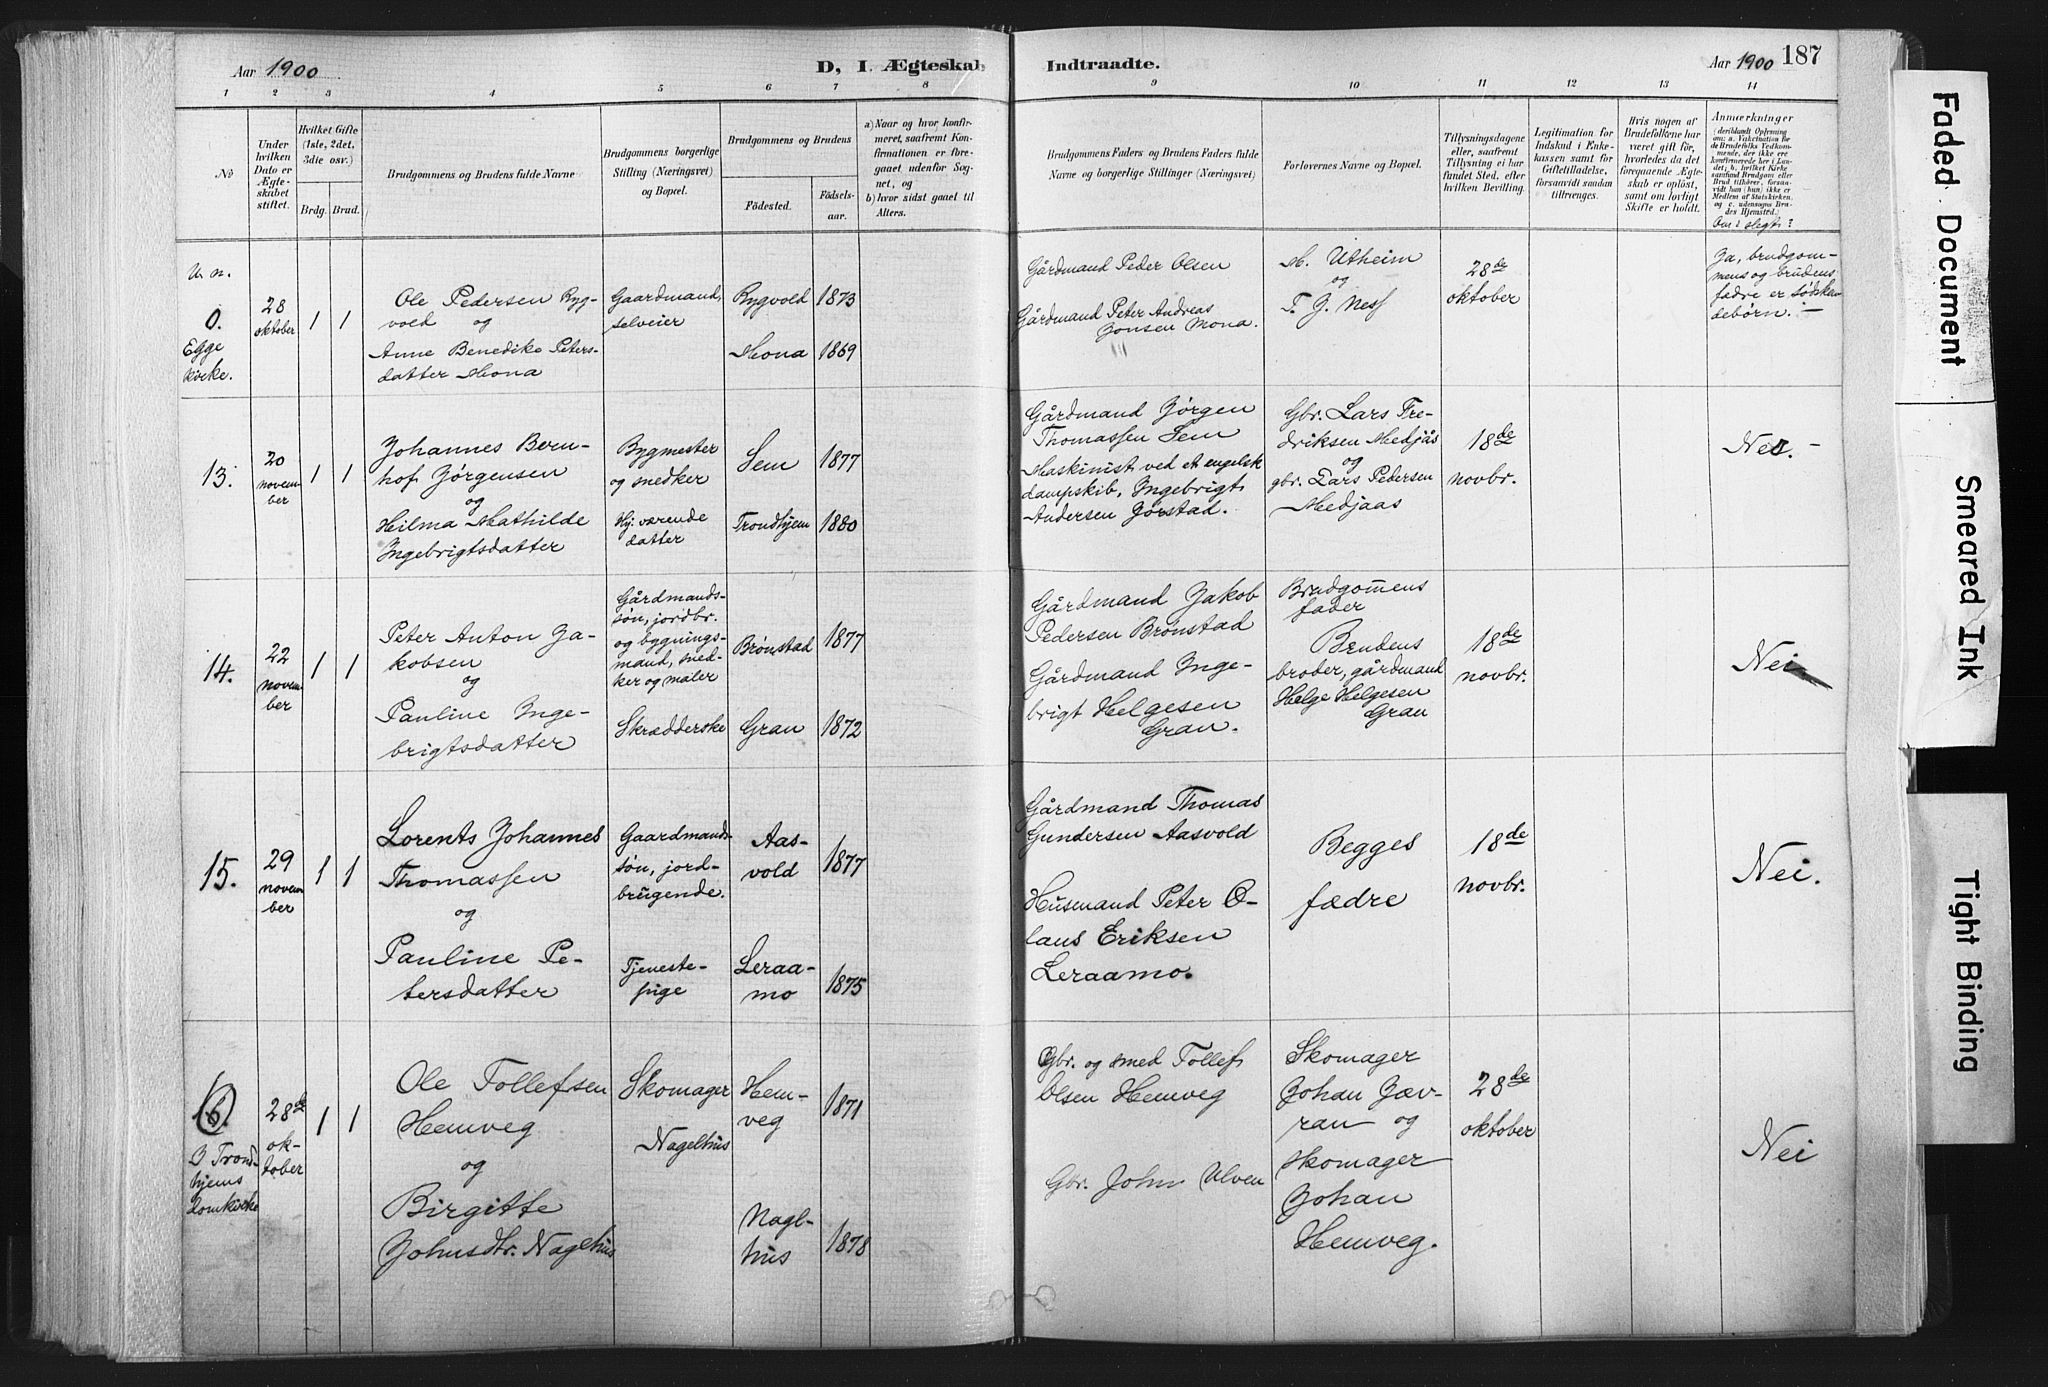 Aar 1900
D, I. Ægteskab Indtraadte.
Aar 1900 187
1 2 3 4 5 6 7 8 9 10 11 12 13 14
No
Under
hvilken
Dato er
Ægte-
skabet
stiftet.
Hvilket Gifte
(1ste, 2det,
3die osv.)
Brdg. Brud.
Brudgommens og Brudens fulde Navne
Brudgommens borgerlige
Stilling (Næringsvei)
og Bopæl.
Brudgommens og Brudens
Fødested.
Fødsels-
aar.
a) Naar og hvor konfir-
meret, saafremt Kon-
firmationen er fore-
gaaet udenfor Sog-
net, og
b) hvor sidst gaaet til
Alters.
Brudgommens Faders og Brudens Faders fulde
Navne og borgerlige Stillinger (Næringsvei)
Forlovernes Navne og Bopæl.
Tillysningsdagene
eller, saafremt
Tillysning ei har
fundet Sted, efter
hvilken Bevilling.
Legitimation for
Indskud i Enke-
kassen samt for
Giftetilladelse,
forsaavidt saadan
tiltrænges.
Hvis nogen af
Brudefolkene har
været gift før,
hvorledes da det
foregaaende Ægte-
skab er opløst,
samt om lovligt
Skifte er holdt.
Anmærkninger
(deriblandt Oplysning
om: a. Vakcination for
de Brudefolks Vedkom-
mende, der ikke ere
konfirmerede her i Lan-
det; b. hvilket Kirke-
samfund Brudgom eller
Brud tilhører, forsaa-
vidt han (hun) ikke er
Medlem af Statskirken,
og c. udensogns Bru-
des Hjemsted.)
Om i slegt?
U. n.
0.
Egge
kirke.
28
oktober
1 1
Ole Pedersen Ryg-
vold og
Anne Benedikte Peters-
datter Mona
Gaardmand,
selveier
Rygvold 1873
Mona 1869
Gårdmand Peder Olsen
Gårdmand Peter Andreas
Jonsen Mona.
M. Utheim
og
T. J. Ness
28de
oktober
Ja, brudgom-
mens og brudens
fædre er sødsken-
debørn. —
13.
20
novem-
ber
1 1
Johannes Bern-
hof Jørgensen
og
Hilma Mathilde
Ingebrigtsdatter
Bygmester
og snedker
Hj. værende
datter
Sem 1877
Trondhjem 1880
Gårdmand Jørgen
Thomassen Sem
Maskinist ved et engelsk
dampskib, Ingebrigt
Andersen Jørstad.
Gbr. Lars Fre-
driksen Medjås
og
gbr. Lars Pedersen
Medjaas
18de
novbr.
Nei. —
14.
22
novem-
ber
1 1
Peter Anton Ja-
kobsen
og
Pauline Inge-
brigtsdatter
Gårdmands-
søn, jordbr.
og bygnings-
mand, sned-
ker og maler
Skrædderske
Brønstad 1877
Gran 1872
Gårdmand Jakob
Pedersen Brønstad
Gårdmand Inge-
brigt Helgesen
Gran.
Brudgommens
fader
Brudens
broder, gårdmand
Helge Helgesen
Gran
18de
novbr.
Nei
15.
29
novem-
ber
1 1
Lorents Johannes
Thomassen
og
Pauline Pe-
tersdatter
Gaardmands-
søn, jord-
brugende.
Tjeneste-
pige
Aas-
vold 1877
Leraa-
mo 1875
Gårdmand Thomas
Gundersen Aasvold
Husmand Peter O-
laus Eriksen
Leraamo.
Begges
fædre
18de
novbr.
Nei.
16.
I Trond-
hjems
Domkirke
28de
ok-
tober
1 1
Ole Tollefsen
Hemveg
og
Birgitte
Johnsdtr. Naglhus
Skomager
Nagelhus
Hem-
veg 1871
Nagl-
hus 1878
Gbr. og smed Tollef
Olsen Hemveg
Gbr. John Ulven
Skomager
Johan Jæv-
ran og
skomager
Johan
Hemveg.
28de
oktober
Nei
Faded Document
Smeared Ink
Tight Binding